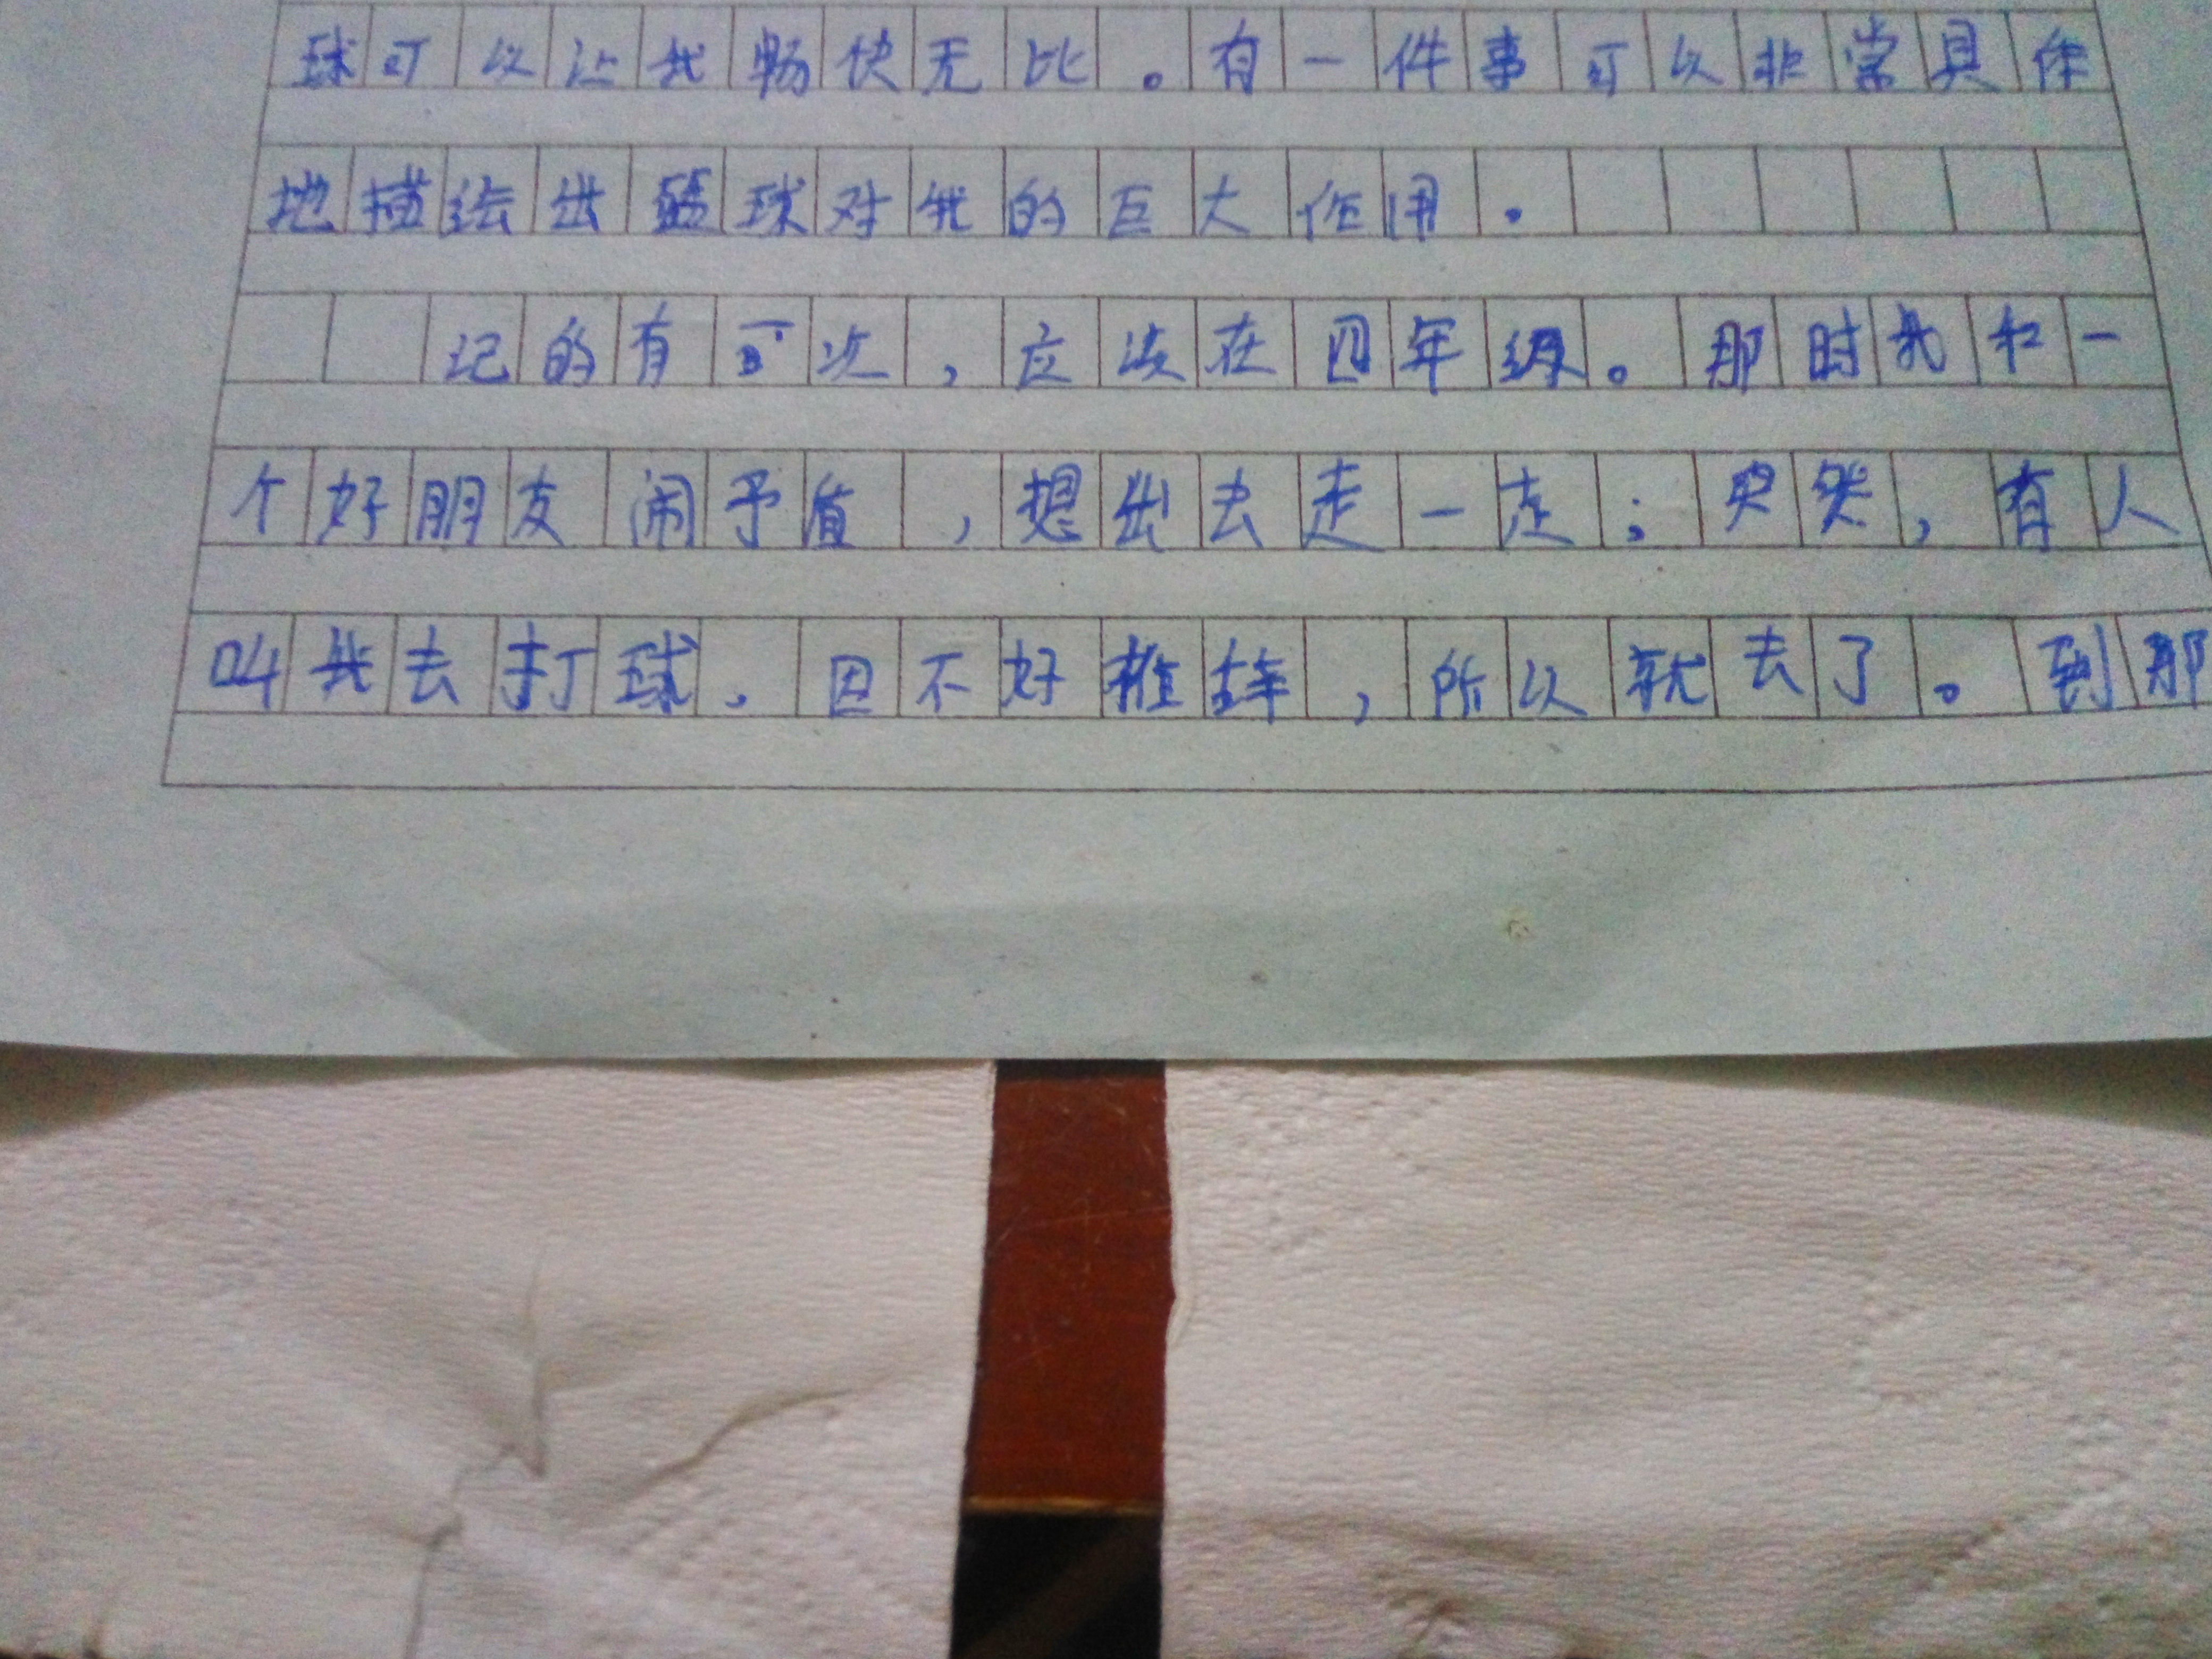 球可以让我畅快无比。有一件事可以非常具体
地描绘出篮球对我的巨大作用。
记的有一次，应该在四年级。那时我和一
个好朋友闹予盾，想出去走一走；突然，有人
叫我去打球，因不好推掉，所以就去了。到那